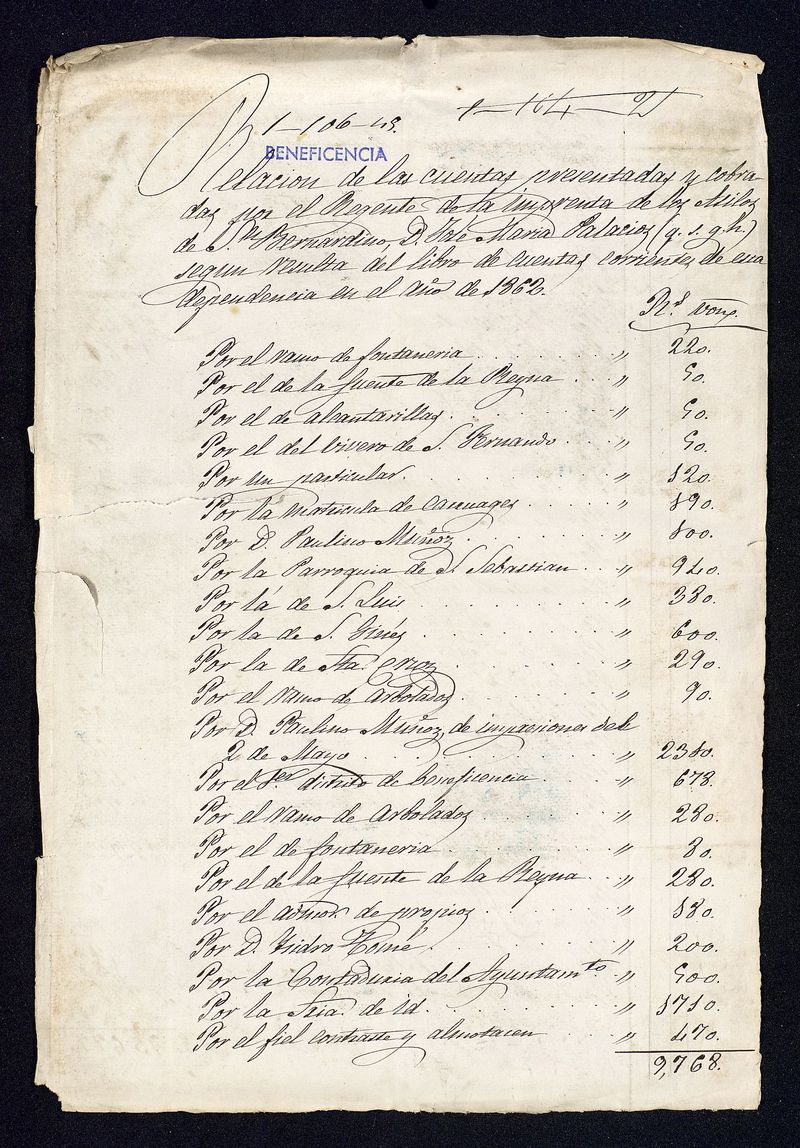 1-106-43. 1-164-2
BENEFICENCIA
Relacion de las cuentas presentadas y cobra-
das por el Regente de la imprenta de los Asilos
de S.n Bernardino, D. José Maria Palacios (q. s. g. h.)
segun resulta del libro de cuentas corrientes de esa
dependencia en el año de 1862.
R.s von.
Por el ramo de fontaneria . . . " 220.
Por el de la fuente de la Reyna . . . " 50.
Por el de alcantarillas . . . " 50.
Por el del vivero de S. Fernando . . . " 50.
Por un particular . . . " 120.
Por la matricula de carruages . . . " 190.
Por D. Paulino Muñoz . . . " 100.
Por la Parroquia de S. Sebastian . . . " 940.
Por la de S. Luis . . . " 380.
Por la de S. Ginés . . . " 600.
Por la de Sta. Cruz . . . " 290.
Por el ramo de Arbolados . . . " 90.
Por D. Paulino Muñoz, de impresiones del
2 de Mayo . . . " 2310.
Por el 1.er distrito de beneficencia . . . " 678.
Por el ramo de Arbolados . . . " 280.
Por el de fontaneria . . . " 80.
Por el de la fuente de la Reyna . . . " 280.
Por el admor. de propios . . . " 180.
Por D. Isidro Tomé . . . " 200.
Por la Contaduria del Ayuntam.to " 500.
Por la Sria. de id. . . . " 1710.
Por el fiel contraste y almotacen . . . " 470.
9,768.